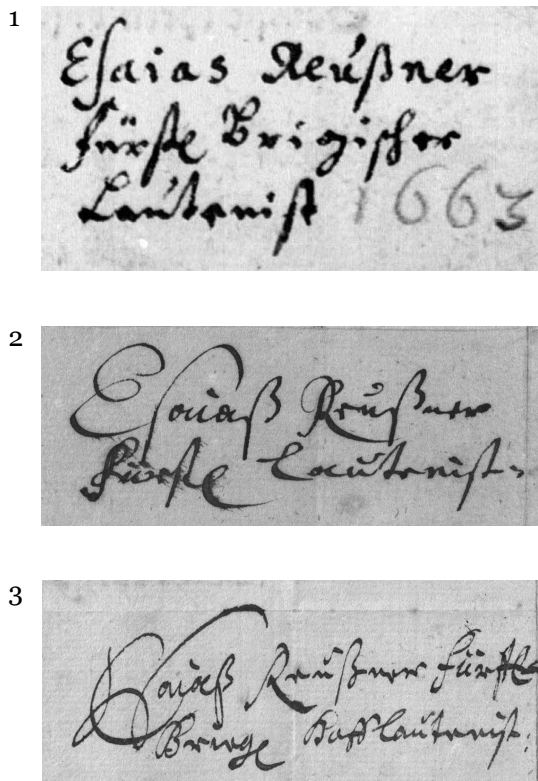 1
Esaias Reußner
fürstl Brigischer
Lautenist 1663
2
Esaiaß Reußner
fürstl Lautenist.
3
Esaiaß Reußner fürstl
Briegl Hofflautenist.